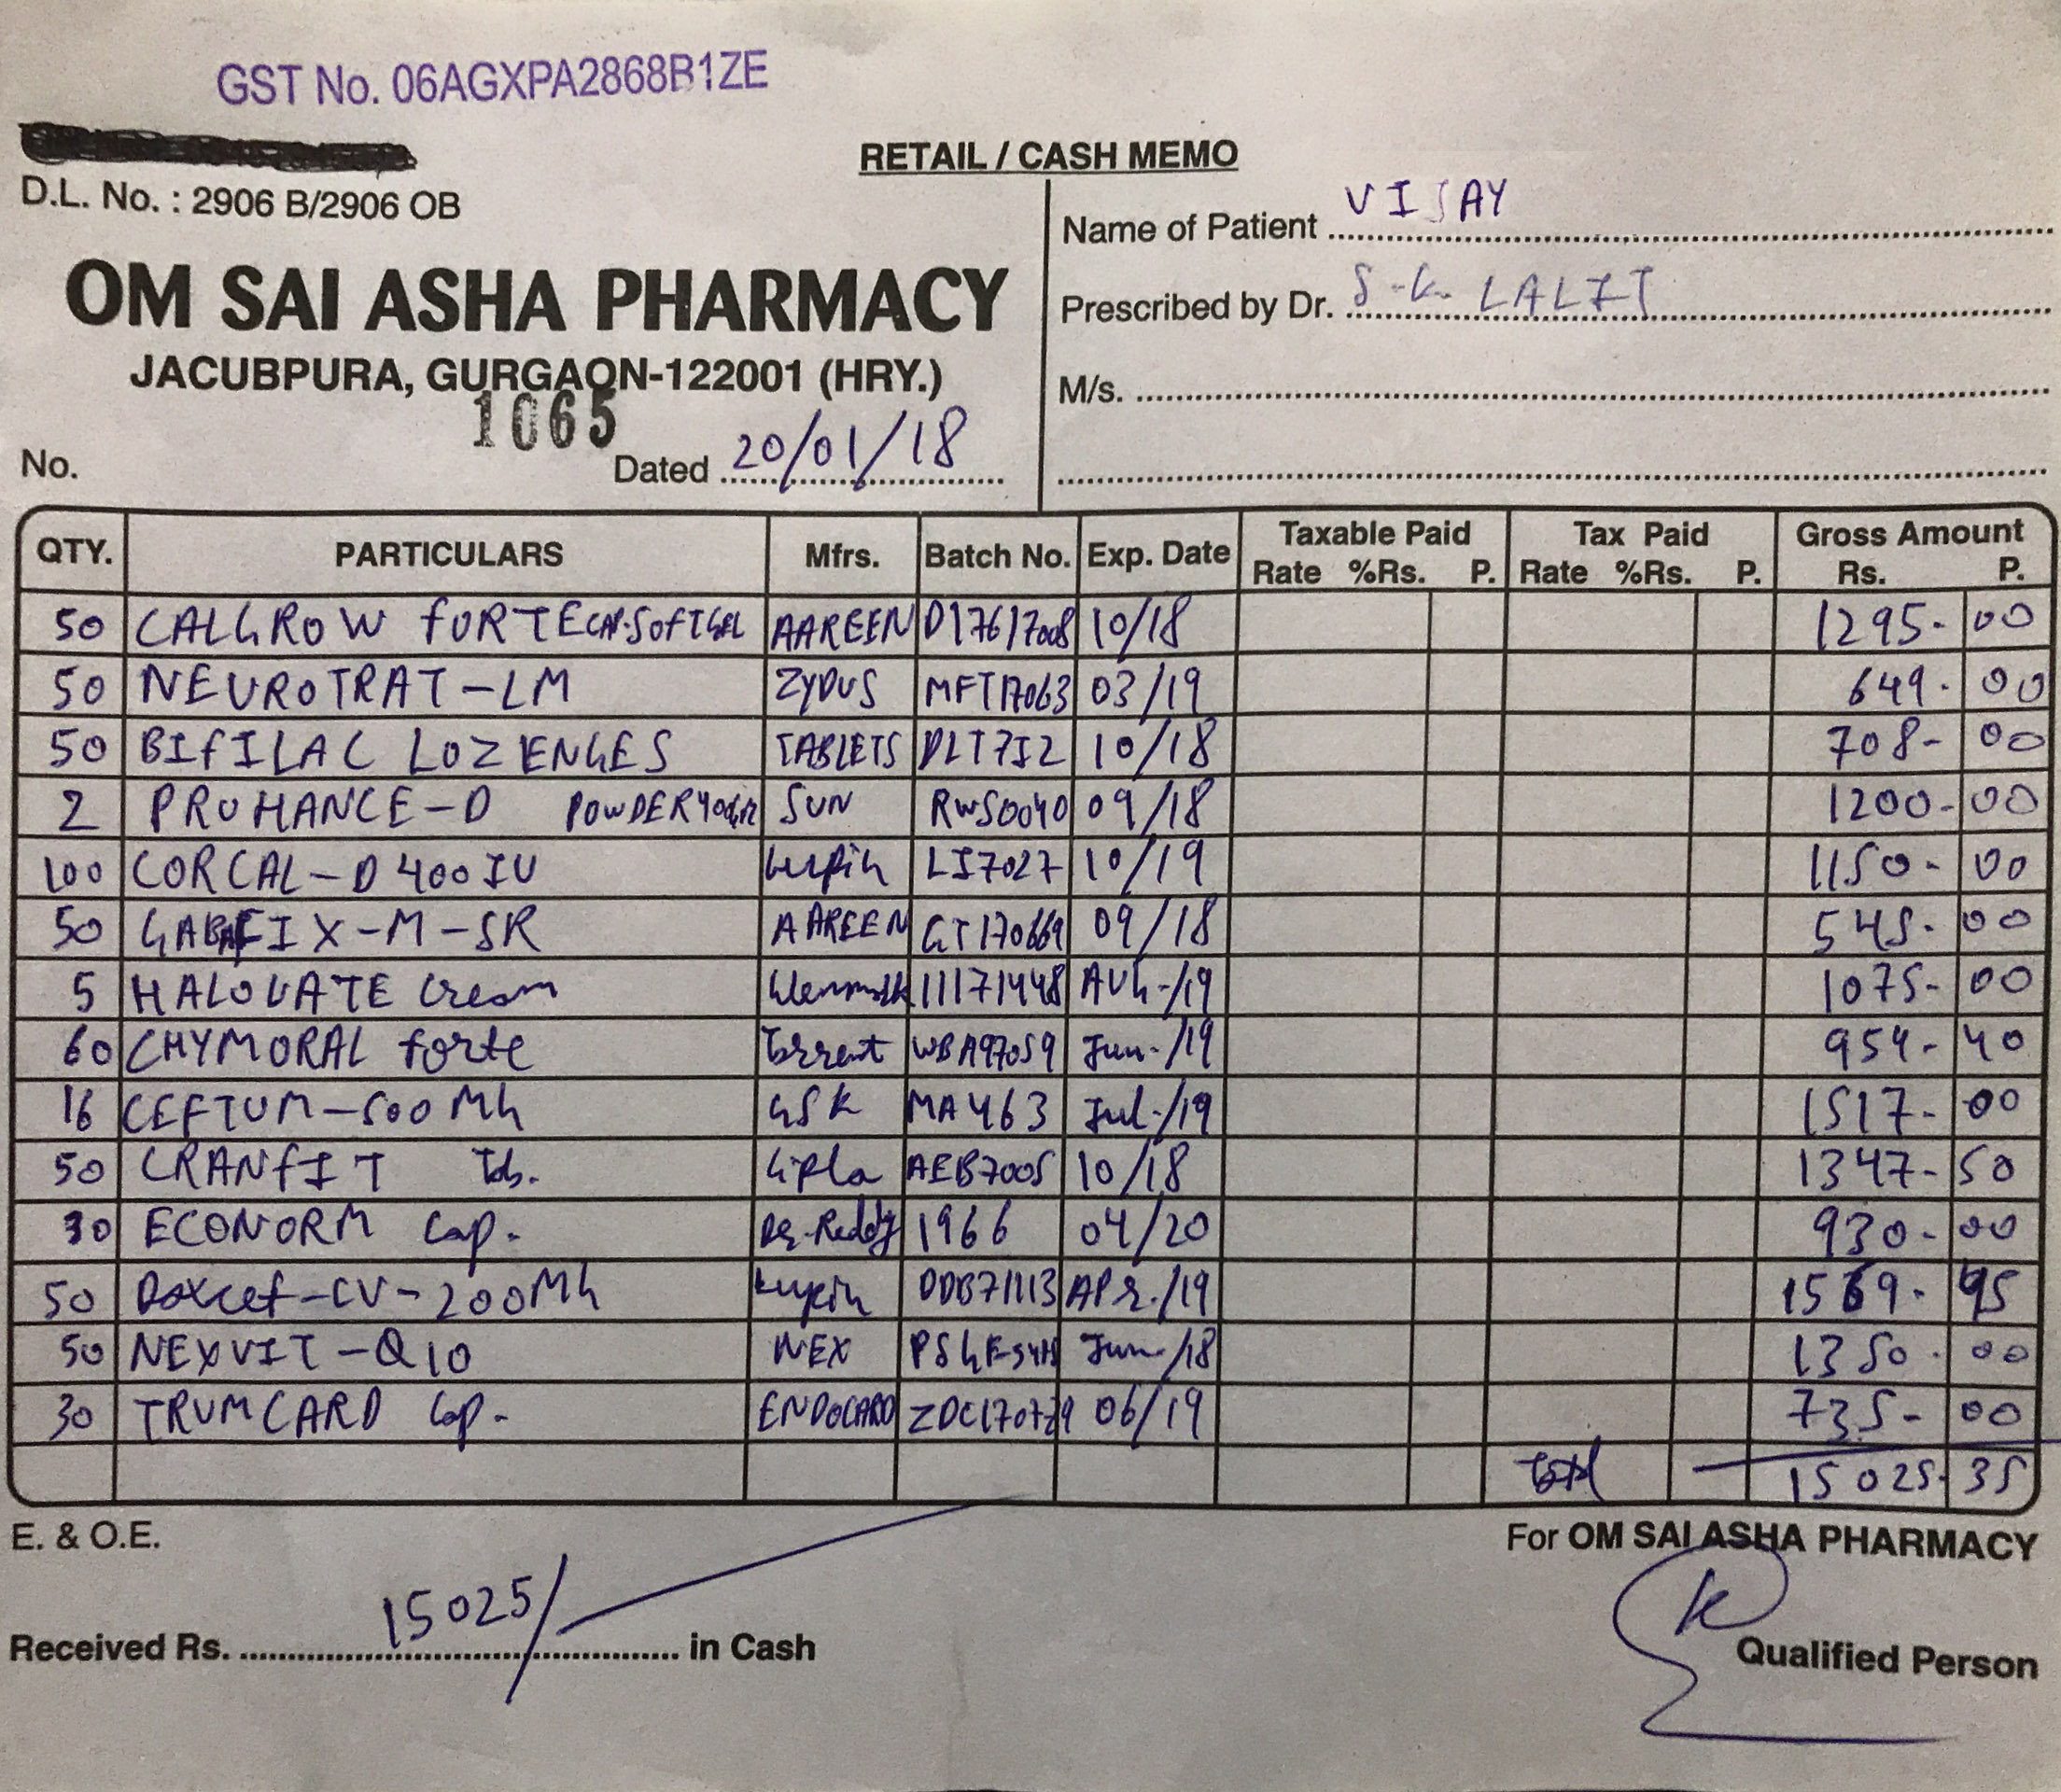 GST No. 06AGXPA2868B1ZE
RETAIL / CASH MEMO
D.L. No. : 2906 B/2906 OB
OM SAI ASHA PHARMACY
JACUBPURA, GURGAON-122001 (HRY.)
No. 1065 Dated 20/01/18
Name of Patient VIJAY
Prescribed by Dr. S.K. LALIT
M/s.
QTY. PARTICULARS Mfrs. Batch No. Exp. Date Taxable Paid Rate %Rs. P. Tax Paid Rate %Rs. P. Gross Amount Rs. P.
50 CALGROW FORTE CAP. SOFTGEL AAREEN D17617008 10/18 1295-00
50 NEUROTRAT-LM ZYDUS MFT17063 03/19 649-00
50 BIFILAC LOZENGES TABLETS DLT7I2 10/18 708-00
2 PROHANCE-D POWDER 400gm SUN RWS0040 09/18 1200-00
100 CORCAL-D 400 IU Lupin LI7027 10/19 1150-00
50 GABAFIX-M-SR AAREEN GT170669 09/18 545-00
5 HALOVATE Cream Glenmark 11171448 AUG-/19 1075-00
60 CHYMORAL forte Torrent WBA97059 Jun-/19 954-40
16 CEFTUM-500 MG GSK MA463 Jul-/19 1517-00
50 CRANFIT Tab. Cipla AEB7005 10/18 1347-50
30 ECONORM Cap. Dr-Reddy 1966 04/20 930-00
50 Doxcef-CV-200MG Lupin DDB71113 APR./19 1569-95
50 NEXVIT-Q10 NEX Jun-/18 1350-00
30 TRUMCARD Cap. ENDOCARD ZDC170729 06/19 735-00
Total 15025-35
E. & O.E.
For OM SAI ASHA PHARMACY
Received Rs. 15025/ in Cash
Qualified Person